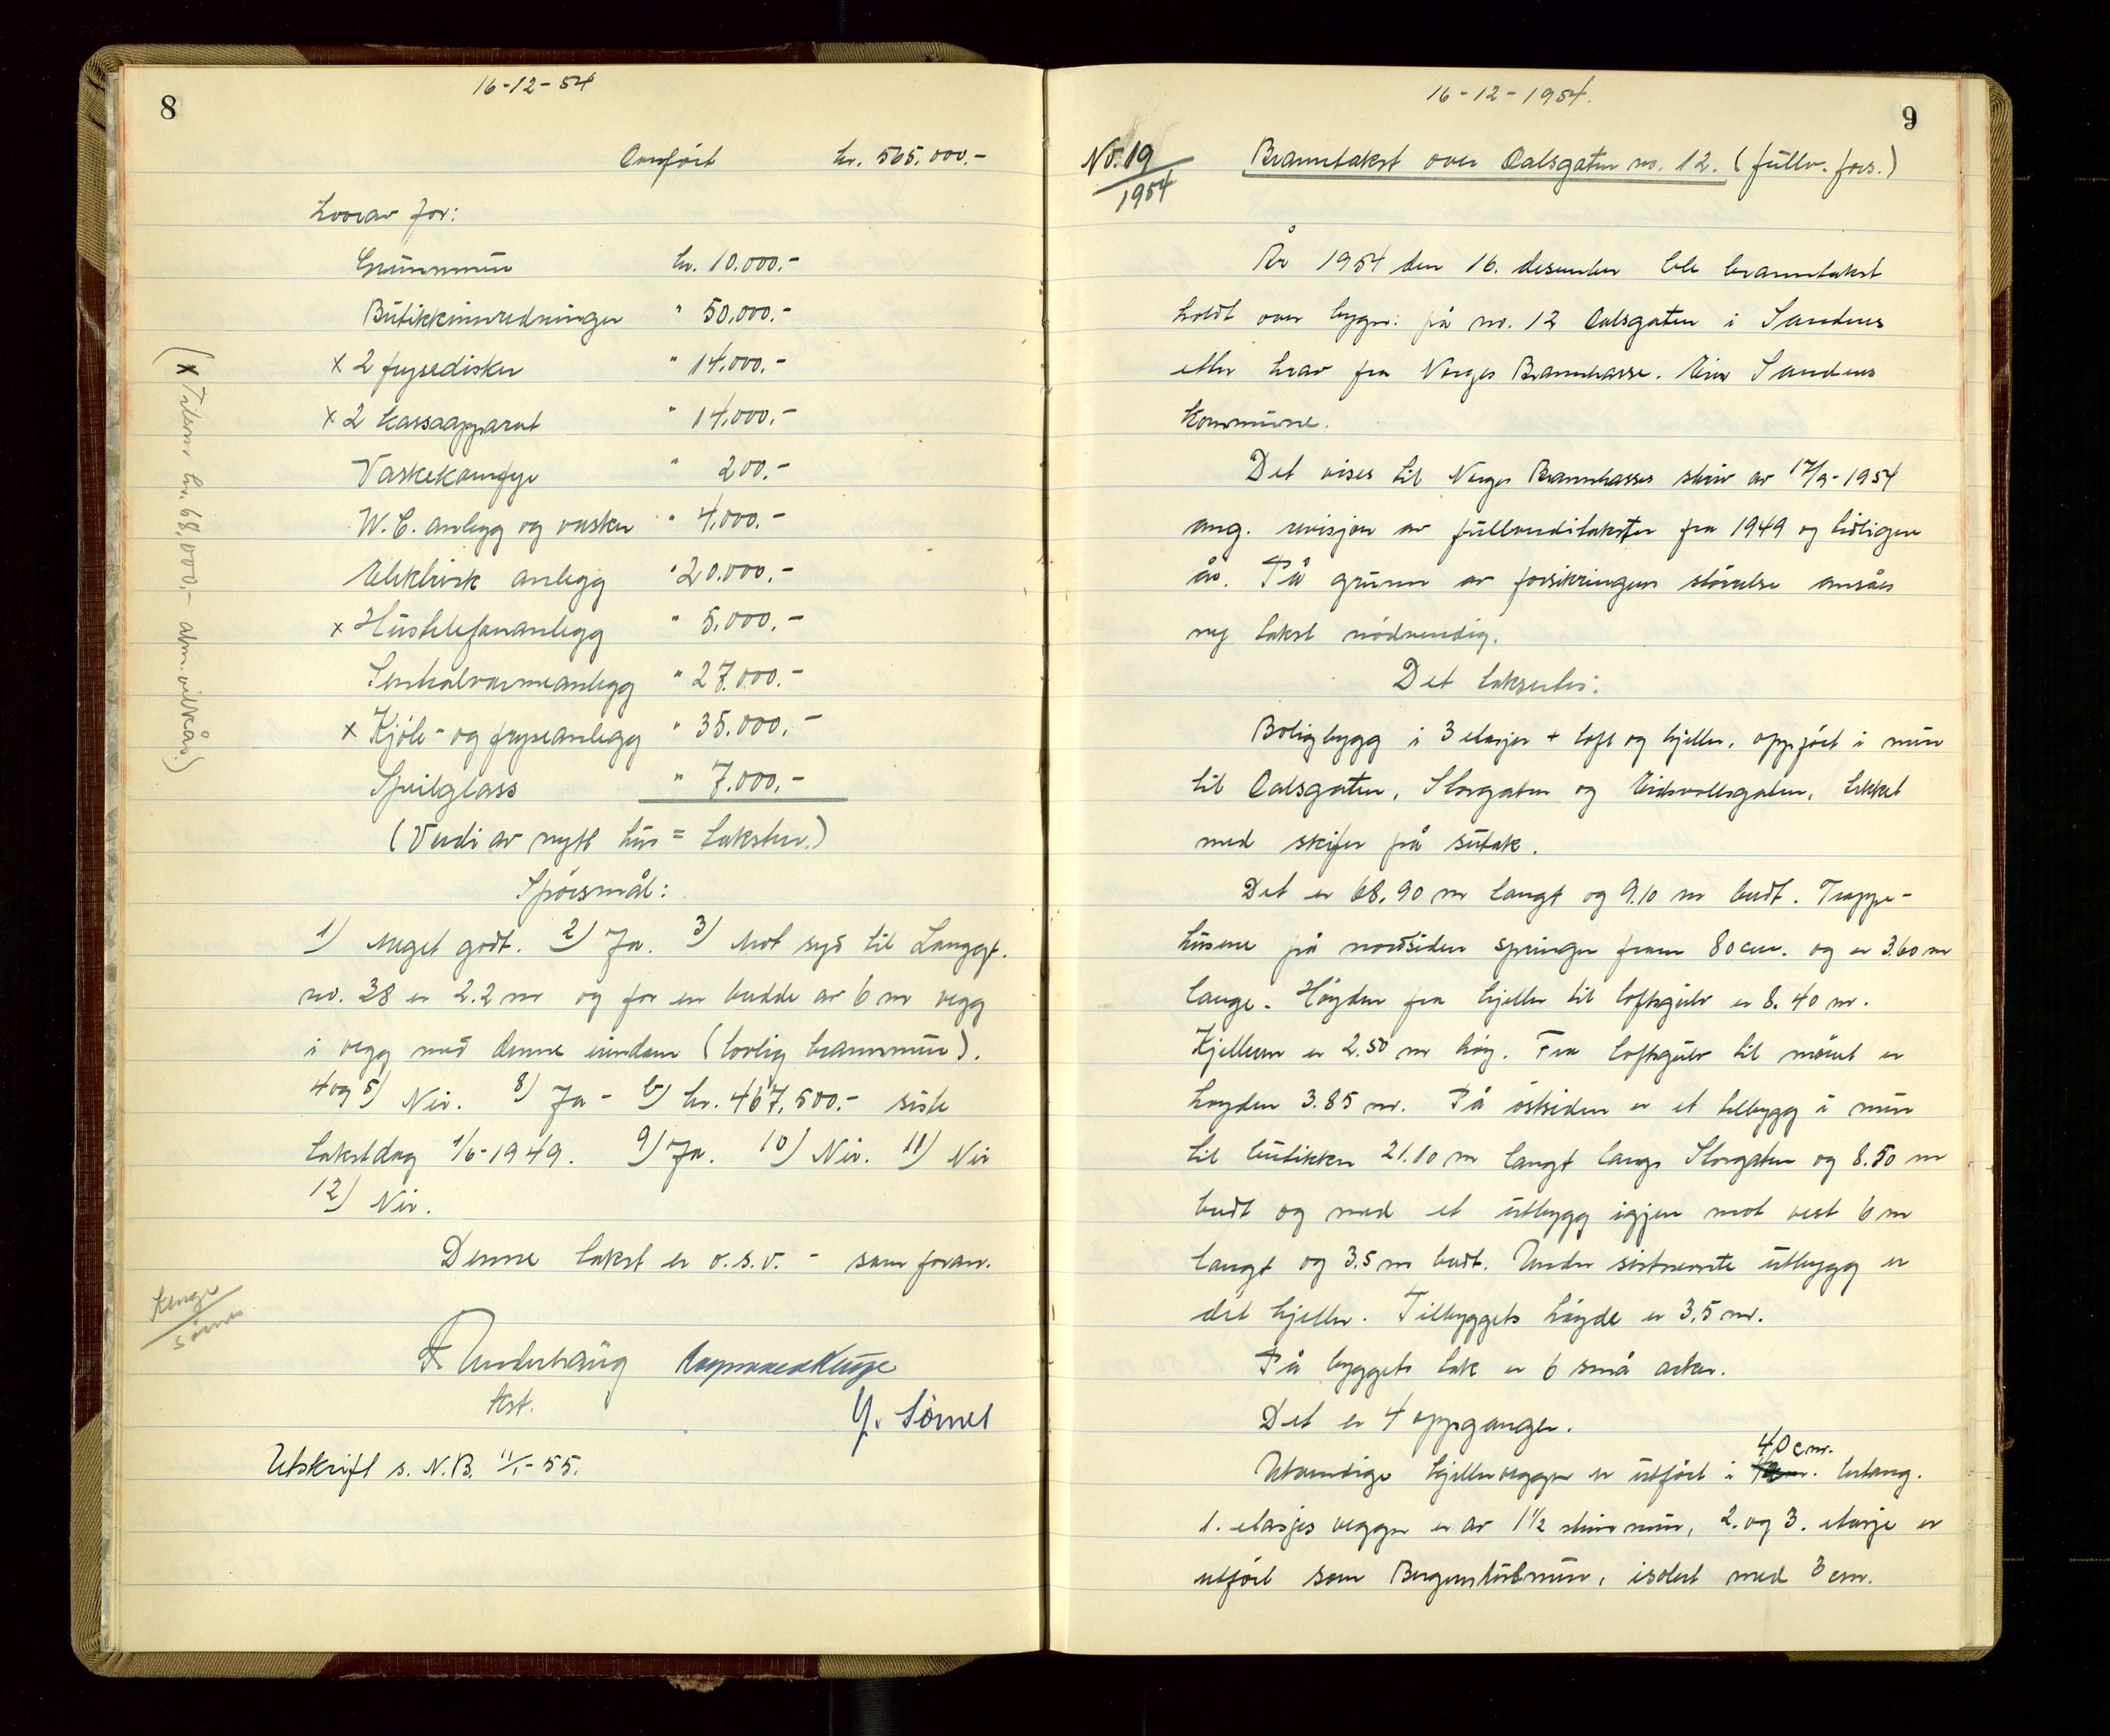 8
16-12-54
Overført kr. 565.000.-
Hvorav for:
Grunnmur kr. 10.000.-
Butikkinnredninger " 50.000.-
x 2 frysedisker " 14.000.-
x 2 kassaapparat " 14.000.-
Vaskekomfyr " 200.-
W.C. anlegg og vasker " 4.000.-
Elektrisk anlegg " 20.000.-
x Hustelefonanlegg " 5.000.-
Sentralvarmeanlegg " 27.000.-
x Kjöle- og fryseanlegg " 35.000.-
Speilglass " 7.000.-
(Verdi av nytt hus = taksten.)
(x Tilsm. kr. 68.000,- alm. vilkår.)
Spörsmål:
1) Meget godt. 2) Ja. 3) Mot syd til Langgt.
no. 38 er 2.2 m og for en bredde av 6 m vegg
i vegg med denne eiendom (lovlig brannmur).
4 og 5) Nei. 8) Ja - b) kr. 467.500.- siste
takstdag 1/6-1949. 9) Ja. 10) Nei. 11) Nei
12) Nei.
Denne takst er o.s.v. - som foran.
Kluge
Sömes
F. Underhaug Rasmus Kluge
kst.
Y. Sömes
Utskrift s. N.B. 11/1-55.
9
16-12-1954.
No. 19
1954
Branntakst over Dalsgaten no. 12. (fullv. fors.)
År 1954 den 16. desember ble branntakst
holdt over bygn. på no. 12 Dalsgaten i Sandnes
etter krav fra Norges Brannkasse. Eier Sandnes
kommune.
Det vises til Norges Brannkasses skriv av 17/9-1954
ang. revisjon av fullverditakster fra 1949 og tidligere
år. På grunn av forsikringens störrelse ansåes
ny takst nödvendig.
Det takseres:
Boligbygg i 3 etasjer + loft og kjeller, oppfört i mur
til Dalsgaten, Storgaten og Eidsvollsgaten, tekket
med skifer på sutak.
Det er 68.90 m langt og 9.10 m bredt. Trappe-
husene på nordsiden springer fram 80 cm. og er 3.60 m
lange. Höyden fra kjeller til loftsgulv er 8.40 m.
Kjelleren er 2.50 m höy. Fra loftsgulv til mönet er
höyden 3.85 m. På östsiden er et tilbygg i mur
til butikker 21.10 m langt langs Storgaten og 8.50 m
bredt og med et utbygg igjen mot vest 6 m
langt og 3.5 m bredt. Under sistnevnte utbygg er
det kjeller. Tilbyggets höyde er 3.5 m.
På byggets tak er 6 små arker.
Det er 4 oppganger.
40 cm.
Utvendige kjellervegger er utfört i betong.
1. etasjes vegger er av 1 1/2 stens mur, 2. og 3. etasje er
utfört som Bergenshulmur, isolert med 3 cm.